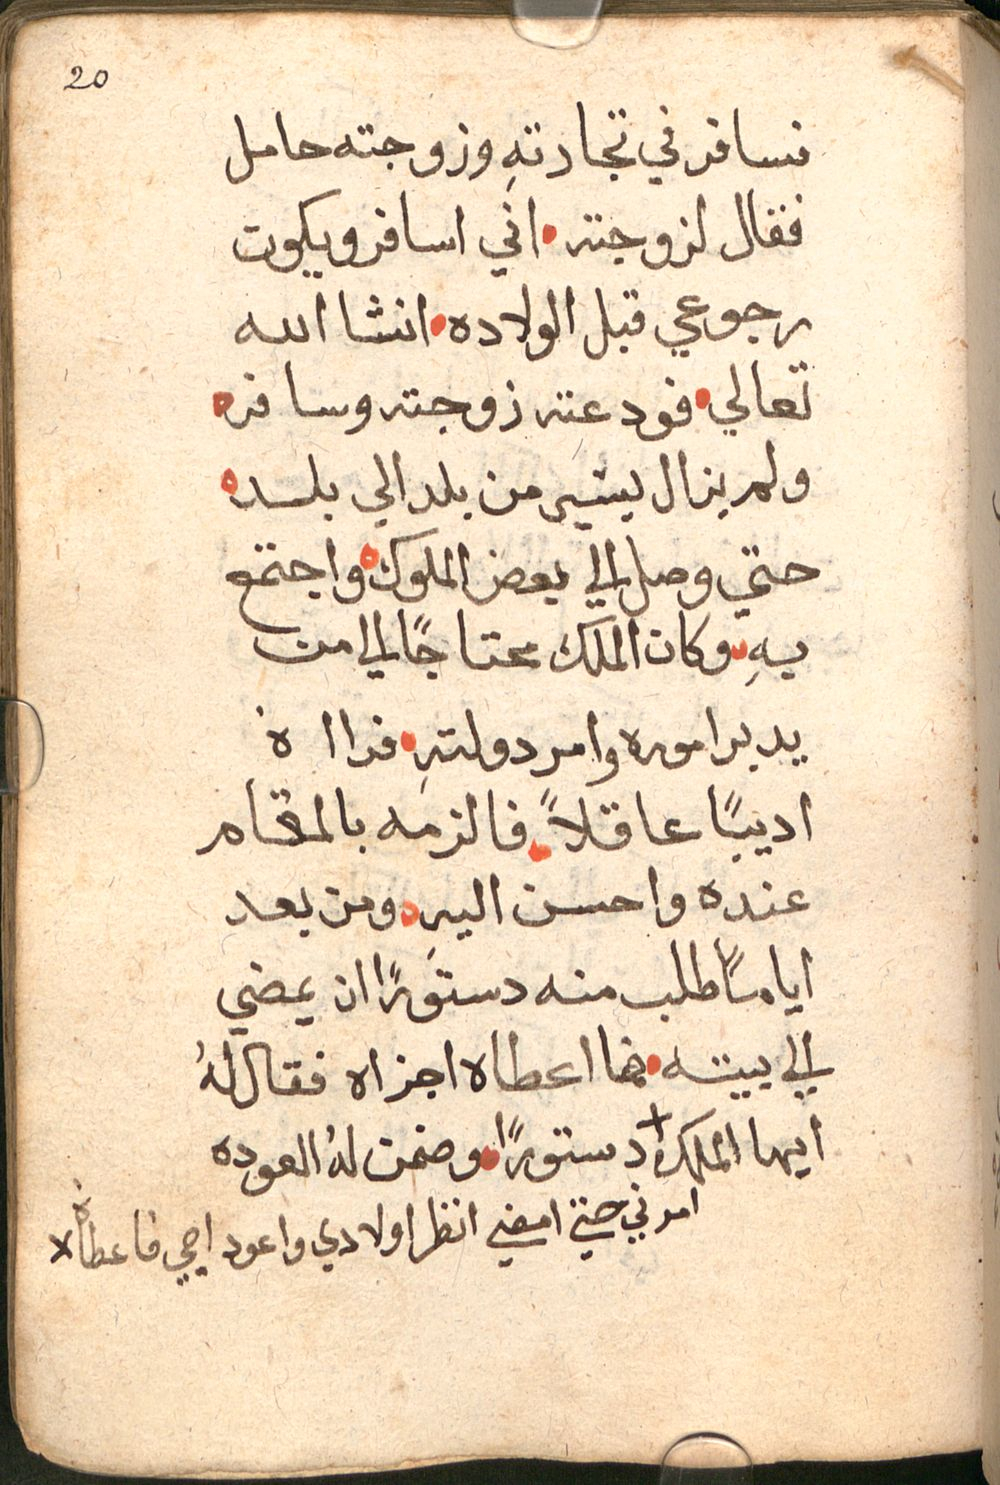 20
فسافر في تجارتهِ وزوجته حامل
فقال لزوجته • اني اسافر ويكون
رجوعي قبل الولاده • انشا الله
تعالي • فودعته زوجته وسافر •
ولم يزال يسير من بلد الي بلد •
حتي وصل الي بعض الملوك • واجتمع
بهِ • وكان الملك محتاجًا الي من
يدبر اموره وامر دولتهِ • فراا ه
اديبًا عاقلاً • فالزمه بالمقام
عنده واحسن اليهِ • ومن بعد
ايامًا طلب منه دستورًا ان يمضي
الي بيته • فما اعطاه اجزاه فقال لهُ
ايها الملك + دستورًا • وضمن لهُ العوده
امرني حتي امضي انظر اولادي واعود اجي فاعطاه x